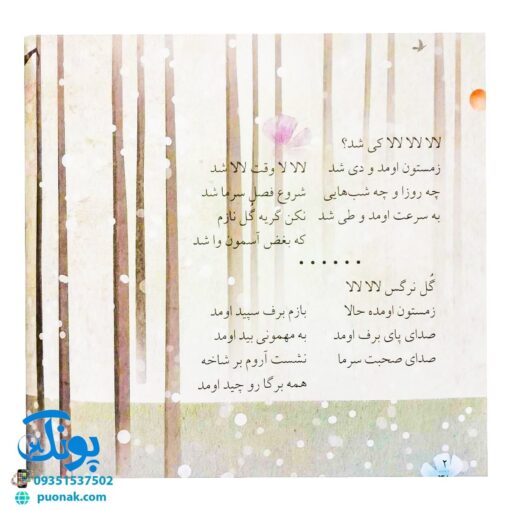 لالا لالا لالا کی شد؟
زمستون اومد و دی شد
چه روزا و چه شب‌هایی
به سرعت اومد و طی شد
لالا لا وقت لالا شد
شروع فصل سرما شد
نکن گریه گُل نازم
که بغض آسمون وا شد
......
گُل نرگس لالا لالا
زمستون اومده حالا
صدای پای برف اومد
صدای صحبت سرما
بازم برف سپید اومد
به مهمونی بید اومد
نشست آروم بر شاخه
همه برگا رو چید اومد
۲
پونک
09351537502
puonak.com